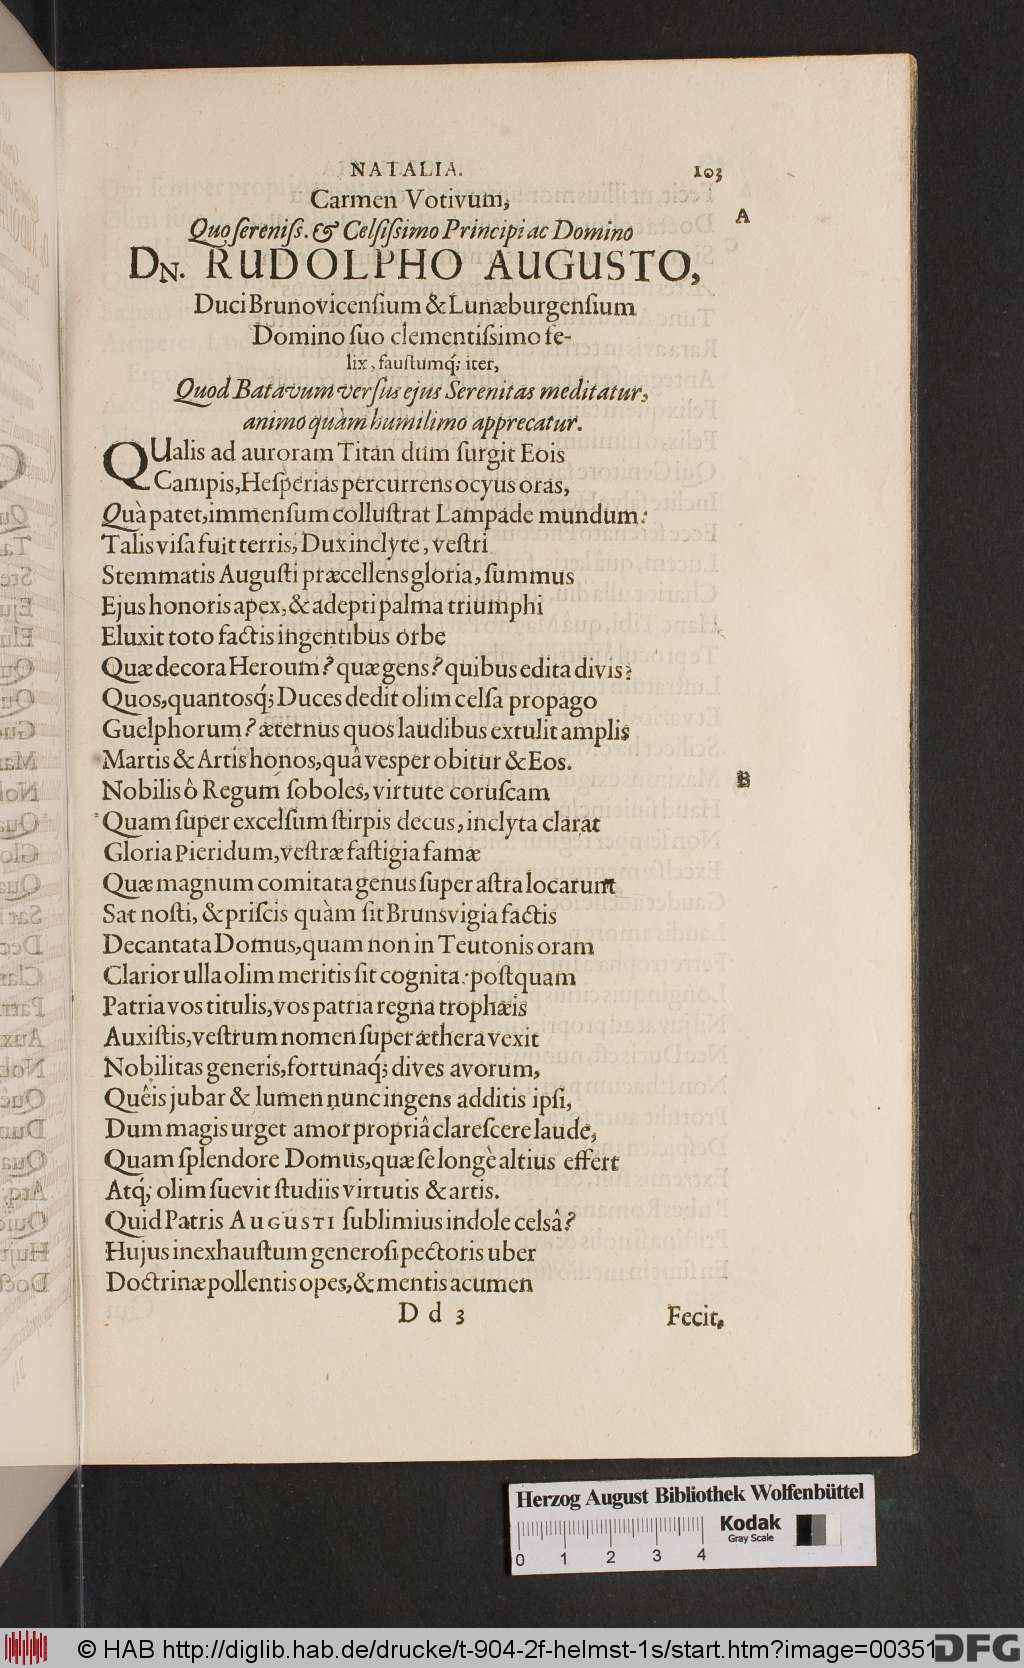 NATALIA. 103
Carmen Votivum,
A
Quo ſereniſs. & Celſiſsimo Principi ac Domino
DN. RUDOLPHO AUGUSTO,
Duci Brunovicenſium & Lunæburgenſium
Domino ſuo clementiſsimo fe-
lix, fauſtumq́; iter,
Quod Batavum verſus ejus Serenitas meditatur,
animo quàm humilimo apprecatur.
QUalis ad auroram Titan dum ſurgit Eois
Campis, Heſperias percurrens ocyus oras,
Quà patet, immenſum colluſtrat Lampade mundum:
Talis viſa fuit terris, Dux inclyte, veſtri
Stemmatis Auguſti præcellens gloria, ſummus
Ejus honoris apex, & adepti palma triumphi
Eluxit toto factis ingentibus orbe
Quæ decora Heroum? quæ gens? quibus edita divis?
Quos, quantosq́; Duces dedit olim celſa propago
Guelphorum? æternus quos laudibus extulit amplis
Martis & Artis honos, quâ veſper obitur & Eos.
Nobilis ô Regum ſoboles, virtute coruſcam
B
Quam ſuper excelſum ſtirpis decus, inclyta clarat
Gloria Pieridum, veſtræ faſtigia famæ
Quæ magnum comitata genus ſuper aſtra locarunt
Sat noſti, & priſcis quàm ſit Brunsvigia factis
Decantata Domus, quam non in Teutonis oram
Clarior ulla olim meritis ſit cognita: poſtquam
Patria vos titulis, vos patria regna trophæis
Auxiſtis, veſtrum nomen ſuper æthera vexit
Nobilitas generis, fortunaq́; dives avorum,
Quêis jubar & lumen nunc ingens additis ipſi,
Dum magis urget amor propriâ clareſcere laude,
Quam ſplendore Domus, quæ ſe longè altius effert
Atq́; olim ſuevit ſtudiis virtutis & artis.
Quid Patris AUGUSTI ſublimius indole celsâ?
Hujus inexhauſtum generoſi pectoris uber
Doctrinæ pollentis opes, & mentis acumen
D d 3 Fecit,
Herzog August Bibliothek Wolfenbüttel
Kodak
Gray Scale
0 1 2 3 4
© HAB http://diglib.hab.de/drucke/t-904-2f-helmst-1s/start.htm?image=00351
DFG